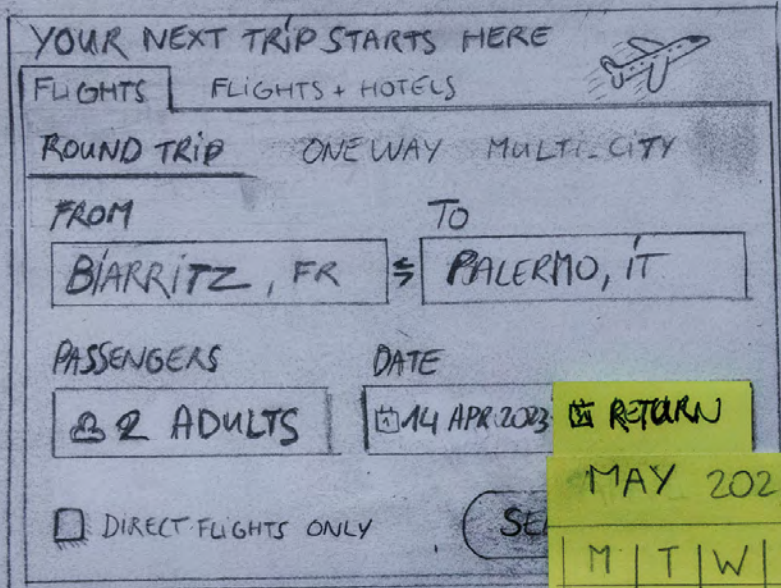 YOUR NEXT TRIP STARTS HERE
FLIGHTS FLIGHTS + HOTELS
ROUND TRIP ONE WAY MULTI-CITY
FROM TO
BIARRITZ, FR PALERMO, IT
PASSENGERS DATE
2 ADULTS 14 APR 2023 RETURN
MAY 202
DIRECT FLIGHTS ONLY SE
M T W